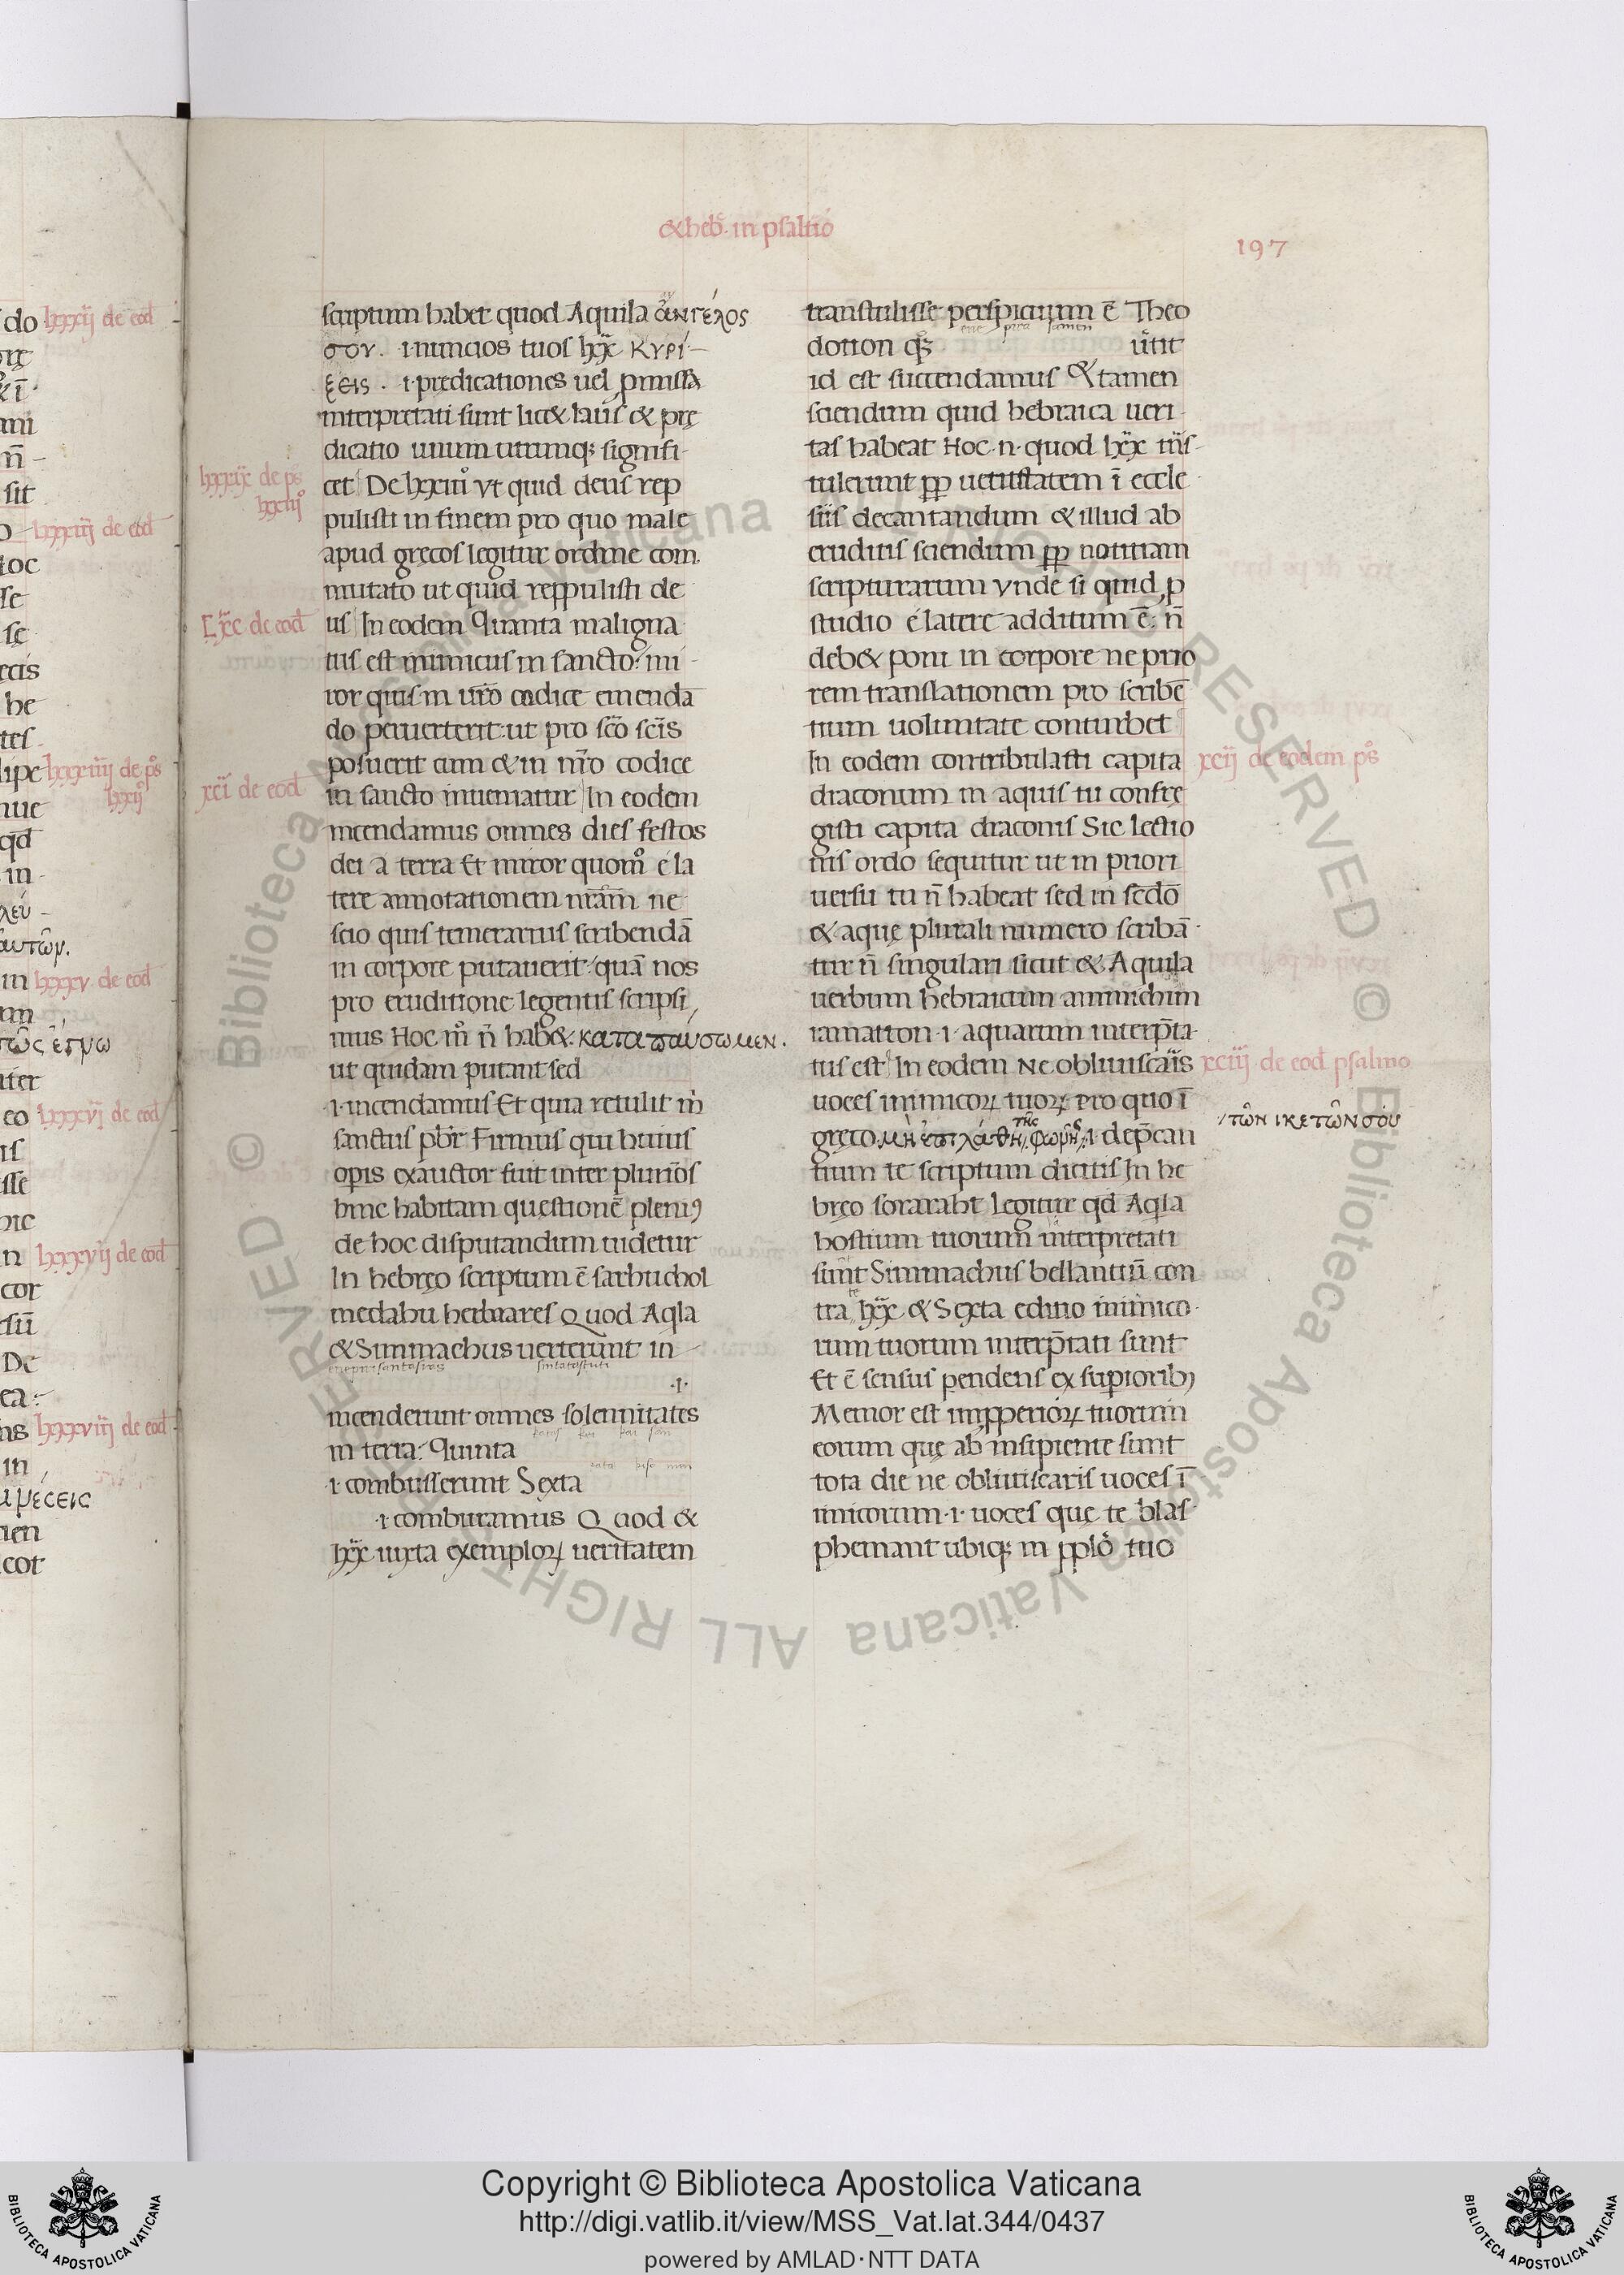 & heb̄. in psaltio
197
scriptum habet quod Aquila ἀνΓέλος
σον. ·i·nuncios tuos lxx ΚΥΡΊ-
ξεις. ·i·predicationes uel
interpretati sunt lic& laus & prę
dicatio unum utrumq; signifi-
cet De lxxiii Vt quid deus rep
pulisti in finem pro quo male
apud gręcos legitur ordine com.
mutato ut quid reppulisti de
us In eodem Quanta maligna
tus est inimicus in sancto: mi
ror quis in uro codice emendā
do peruerterit: ut pro sco scis
posuerit cum & in nro codice
in sancto inueniatur In eodem
incendamus omnes dies festos
dei a terra Et miror quomo e la
tere annotationem nram ne
scio quis temerarius scribendā
in corpore putauerit: quā nos
pro eruditione legentis scripsi
mus Hoc m n hab&: καταπαυσωμεν.
ut quidam putant sed
·i·incendamus Et quia retulit m
sanctus pbr Firmus qui huius
opis exauctor fuit inter plurios
hinc habitam questionē pleni9
de hoc disputandum uidetur
In hebręo scriptum ē sarbuchol
medahu Quod Aqla
& Simmachus uerterunt in
·i·
incenderunt omnes solennitates
in terra: Quinta
·i·combusserunt Sexta
·i·comburamus Quod &
lxx iuxta exemplorꝝ ueritatem
transtulisse perspicuum ē Theo
dotion qꝫ uīit
id est succendamus & tamen
sciendum quid hebraica ueri-
tas habeat Hoc·n·quod lxx tns-
tulerunt pp uetustatem ī eccle-
siis decantandum & illud ab
eruditis sciendum pp notitiam
scripturarum vnde si quid p
studio e latere additum ē: n
deb& poni in corpore ne prio
rem translationem pro scribē
tium uoluntate conturbet
In eodem contribulasti capita
draconum in aquis tu confrę
gisti capita draconis Sic lectio
nis ordo sequitur ut in priori
uersu tu n habeat sed in scdo
& aquę plurali numero scribā-
tur n singulari sicut & Aquila
uerbum hebraicum ammichim
iamatton·i·aquarum interpta-
tus est In eodem Ne obliuiscaris
uoces inimicorꝝ tuorꝝ Pro quo ī
gręco. μὴ ἐπιλάθη, τῆς φωνῆς, ·i·depcan
tium te scriptum dicitis In he
bręo sorarabt legitur qd Aqla
hostium tuorum interpretati
sunt Simmachus bellantiū con
tra te lxx & Sexta editio inimico-
rum tuorum interptati sunt
Et ē sensus pendens ex supiorib;
Memor est impperiorꝝ tuorum
eorum quę ab insipiente sunt
tota die ne obliuiscaris uoces ī
imicorum·i·uoces quę te blas-
phemant ubiqꝫ in pplo tuo
lxxxix de ps
lxxiii
xcii de eodem ps
xciii de eod psalmo
τῶν ικετῶν σου
xci de eod
lxxxii de eod
lxxxiii de eod
lxxxiiii de ps
lxxii
lxxxv de eod
lxxxvi de eod
lxxxvii de eod
lxxxviii de eod
© Biblioteca Apostolica Vaticana ALL RIGHTS RESERVED © Biblioteca Apostolica Vaticana ALL RIGHTS RESERVED
Copyright © Biblioteca Apostolica Vaticana
http://digi.vatlib.it/view/MSS_Vat.lat.344/0437
powered by AMLAD·NTT DATA
BIBLIOTECA APOSTOLICA VATICANA
BIBLIOTECA APOSTOLICA VATICANA